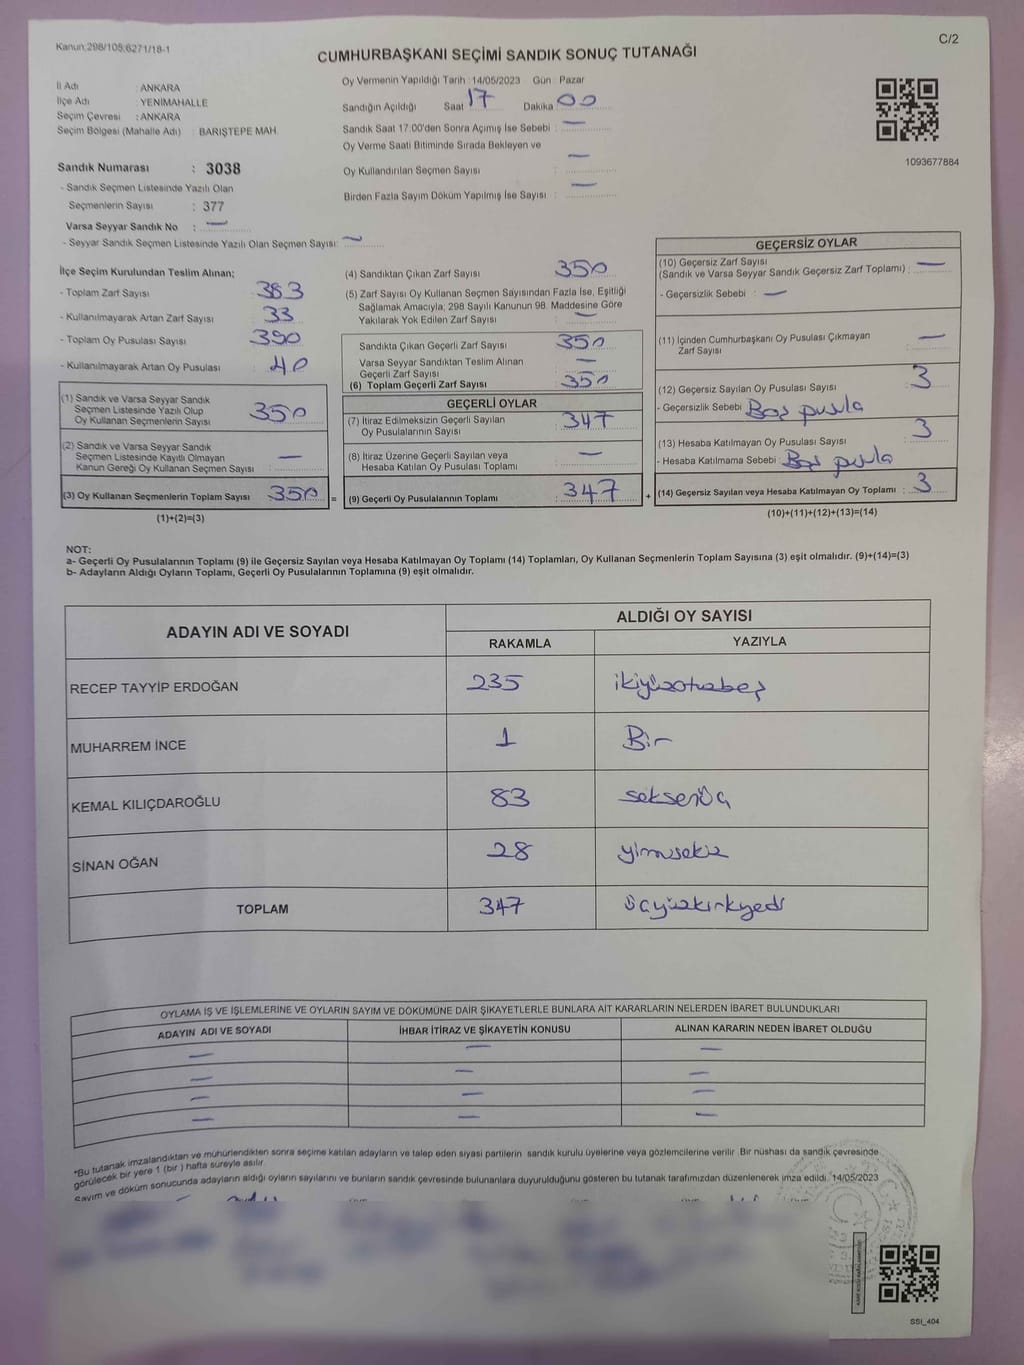 Kanun:298/105;6271/18-1
C/2
CUMHURBAŞKANI SEÇİMİ SANDIK SONUÇ TUTANAĞI
İl Adı : ANKARA
İlçe Adı : YENİMAHALLE
Seçim Çevresi : ANKARA
Seçim Bölgesi (Mahalle Adı) : BARIŞTEPE MAH.
Sandık Numarası : 3038
- Sandık Seçmen Listesinde Yazılı Olan
Seçmenlerin Sayısı : 377
Varsa Seyyar Sandık No : —
- Seyyar Sandık Seçmen Listesinde Yazılı Olan Seçmen Sayısı: —
Oy Vermenin Yapıldığı Tarih : 14/05/2023 Gün : Pazar
Sandığın Açıldığı Saat 17 Dakika 00
Sandık Saat 17:00'den Sonra Açımış İse Sebebi : —
Oy Verme Saati Bitiminde Sırada Bekleyen ve
Oy Kullandırılan Seçmen Sayısı : —
Birden Fazla Sayım Döküm Yapılmış İse Sayısı : —
1093677884
İlçe Seçim Kurulundan Teslim Alınan;
- Toplam Zarf Sayısı : 383
- Kullanılmayarak Artan Zarf Sayısı : 33
- Toplam Oy Pusulası Sayısı : 390
- Kullanılmayarak Artan Oy Pusulası : 40
(1) Sandık ve Varsa Seyyar Sandık
Seçmen Listesinde Yazılı Olup
Oy Kullanan Seçmenlerin Sayısı : 350
(2) Sandık ve Varsa Seyyar Sandık
Seçmen Listesinde Kayıtlı Olmayan
Kanun Gereği Oy Kullanan Seçmen Sayısı : —
(3) Oy Kullanan Seçmenlerin Toplam Sayısı : 350 =
(1)+(2)=(3)
(4) Sandıktan Çıkan Zarf Sayısı : 350
(5) Zarf Sayısı Oy Kullanan Seçmen Sayısından Fazla İse, Eşitliği
Sağlamak Amacıyla; 298 Sayılı Kanunun 98. Maddesine Göre
Yakılarak Yok Edilen Zarf Sayısı : —
Sandıkta Çıkan Geçerli Zarf Sayısı : 350
Varsa Seyyar Sandıktan Teslim Alınan
Geçerli Zarf Sayısı : —
(6) Toplam Geçerli Zarf Sayısı : 350
GEÇERLİ OYLAR
(7) İtiraz Edilmeksizin Geçerli Sayılan
Oy Pusulalarının Sayısı : 347
(8) İtiraz Üzerine Geçerli Sayılan veya
Hesaba Katılan Oy Pusulası Toplamı : —
(9) Geçerli Oy Pusulalarının Toplamı : 347 +
GEÇERSİZ OYLAR
(10) Geçersiz Zarf Sayısı
(Sandık ve Varsa Seyyar Sandık Geçersiz Zarf Toplamı) : —
- Geçersizlik Sebebi : —
(11) İçinden Cumhurbaşkanı Oy Pusulası Çıkmayan
Zarf Sayısı : —
(12) Geçersiz Sayılan Oy Pusulası Sayısı : 3
- Geçersizlik Sebebi : Boş pusula
(13) Hesaba Katılmayan Oy Pusulası Sayısı : 3
- Hesaba Katılmama Sebebi : Boş pusula
(14) Geçersiz Sayılan veya Hesaba Katılmayan Oy Toplamı : 3
(10)+(11)+(12)+(13)=(14)
NOT:
a- Geçerli Oy Pusulalarının Toplamı (9) ile Geçersiz Sayılan veya Hesaba Katılmayan Oy Toplamı (14) Toplamları, Oy Kullanan Seçmenlerin Toplam Sayısına (3) eşit olmalıdır. (9)+(14)=(3)
b- Adayların Aldığı Oyların Toplamı, Geçerli Oy Pusulalarının Toplamına (9) eşit olmalıdır.
ADAYIN ADI VE SOYADI
ALDIĞI OY SAYISI
RAKAMLA YAZIYLA
RECEP TAYYİP ERDOĞAN 235 ikiyüzotuzbeş
MUHARREM İNCE 1 Bir
KEMAL KILIÇDAROĞLU 83 seksenüç
SİNAN OĞAN 28 yirmisekiz
TOPLAM 347 üçyüzkırkyedi
OYLAMA İŞ VE İŞLEMLERİNE VE OYLARIN SAYIM VE DÖKÜMÜNE DAİR ŞİKAYETLERLE BUNLARA AİT KARARLARIN NELERDEN İBARET BULUNDUKLARI
ADAYIN ADI VE SOYADI İHBAR İTİRAZ VE ŞİKAYETİN KONUSU ALINAN KARARIN NEDEN İBARET OLDUĞU
— — —
— — —
— — —
— — —
*Bu tutanak imzalandıktan ve mühürlendikten sonra seçime katılan adayların ve talep eden siyasi partilerin sandık kurulu üyelerine veya gözlemcilerine verilir. Bir nüshası da sandık çevresinde
görülecek bir yere 1 (bir) hafta süreyle asılır.
Sayım ve döküm sonucunda adayların aldığı oyların sayılarını ve bunların sandık çevresinde bulunanlara duyurulduğunu gösteren bu tutanak tarafımızdan düzenlenerek imza edildi. 14/05/2023
SSI_404